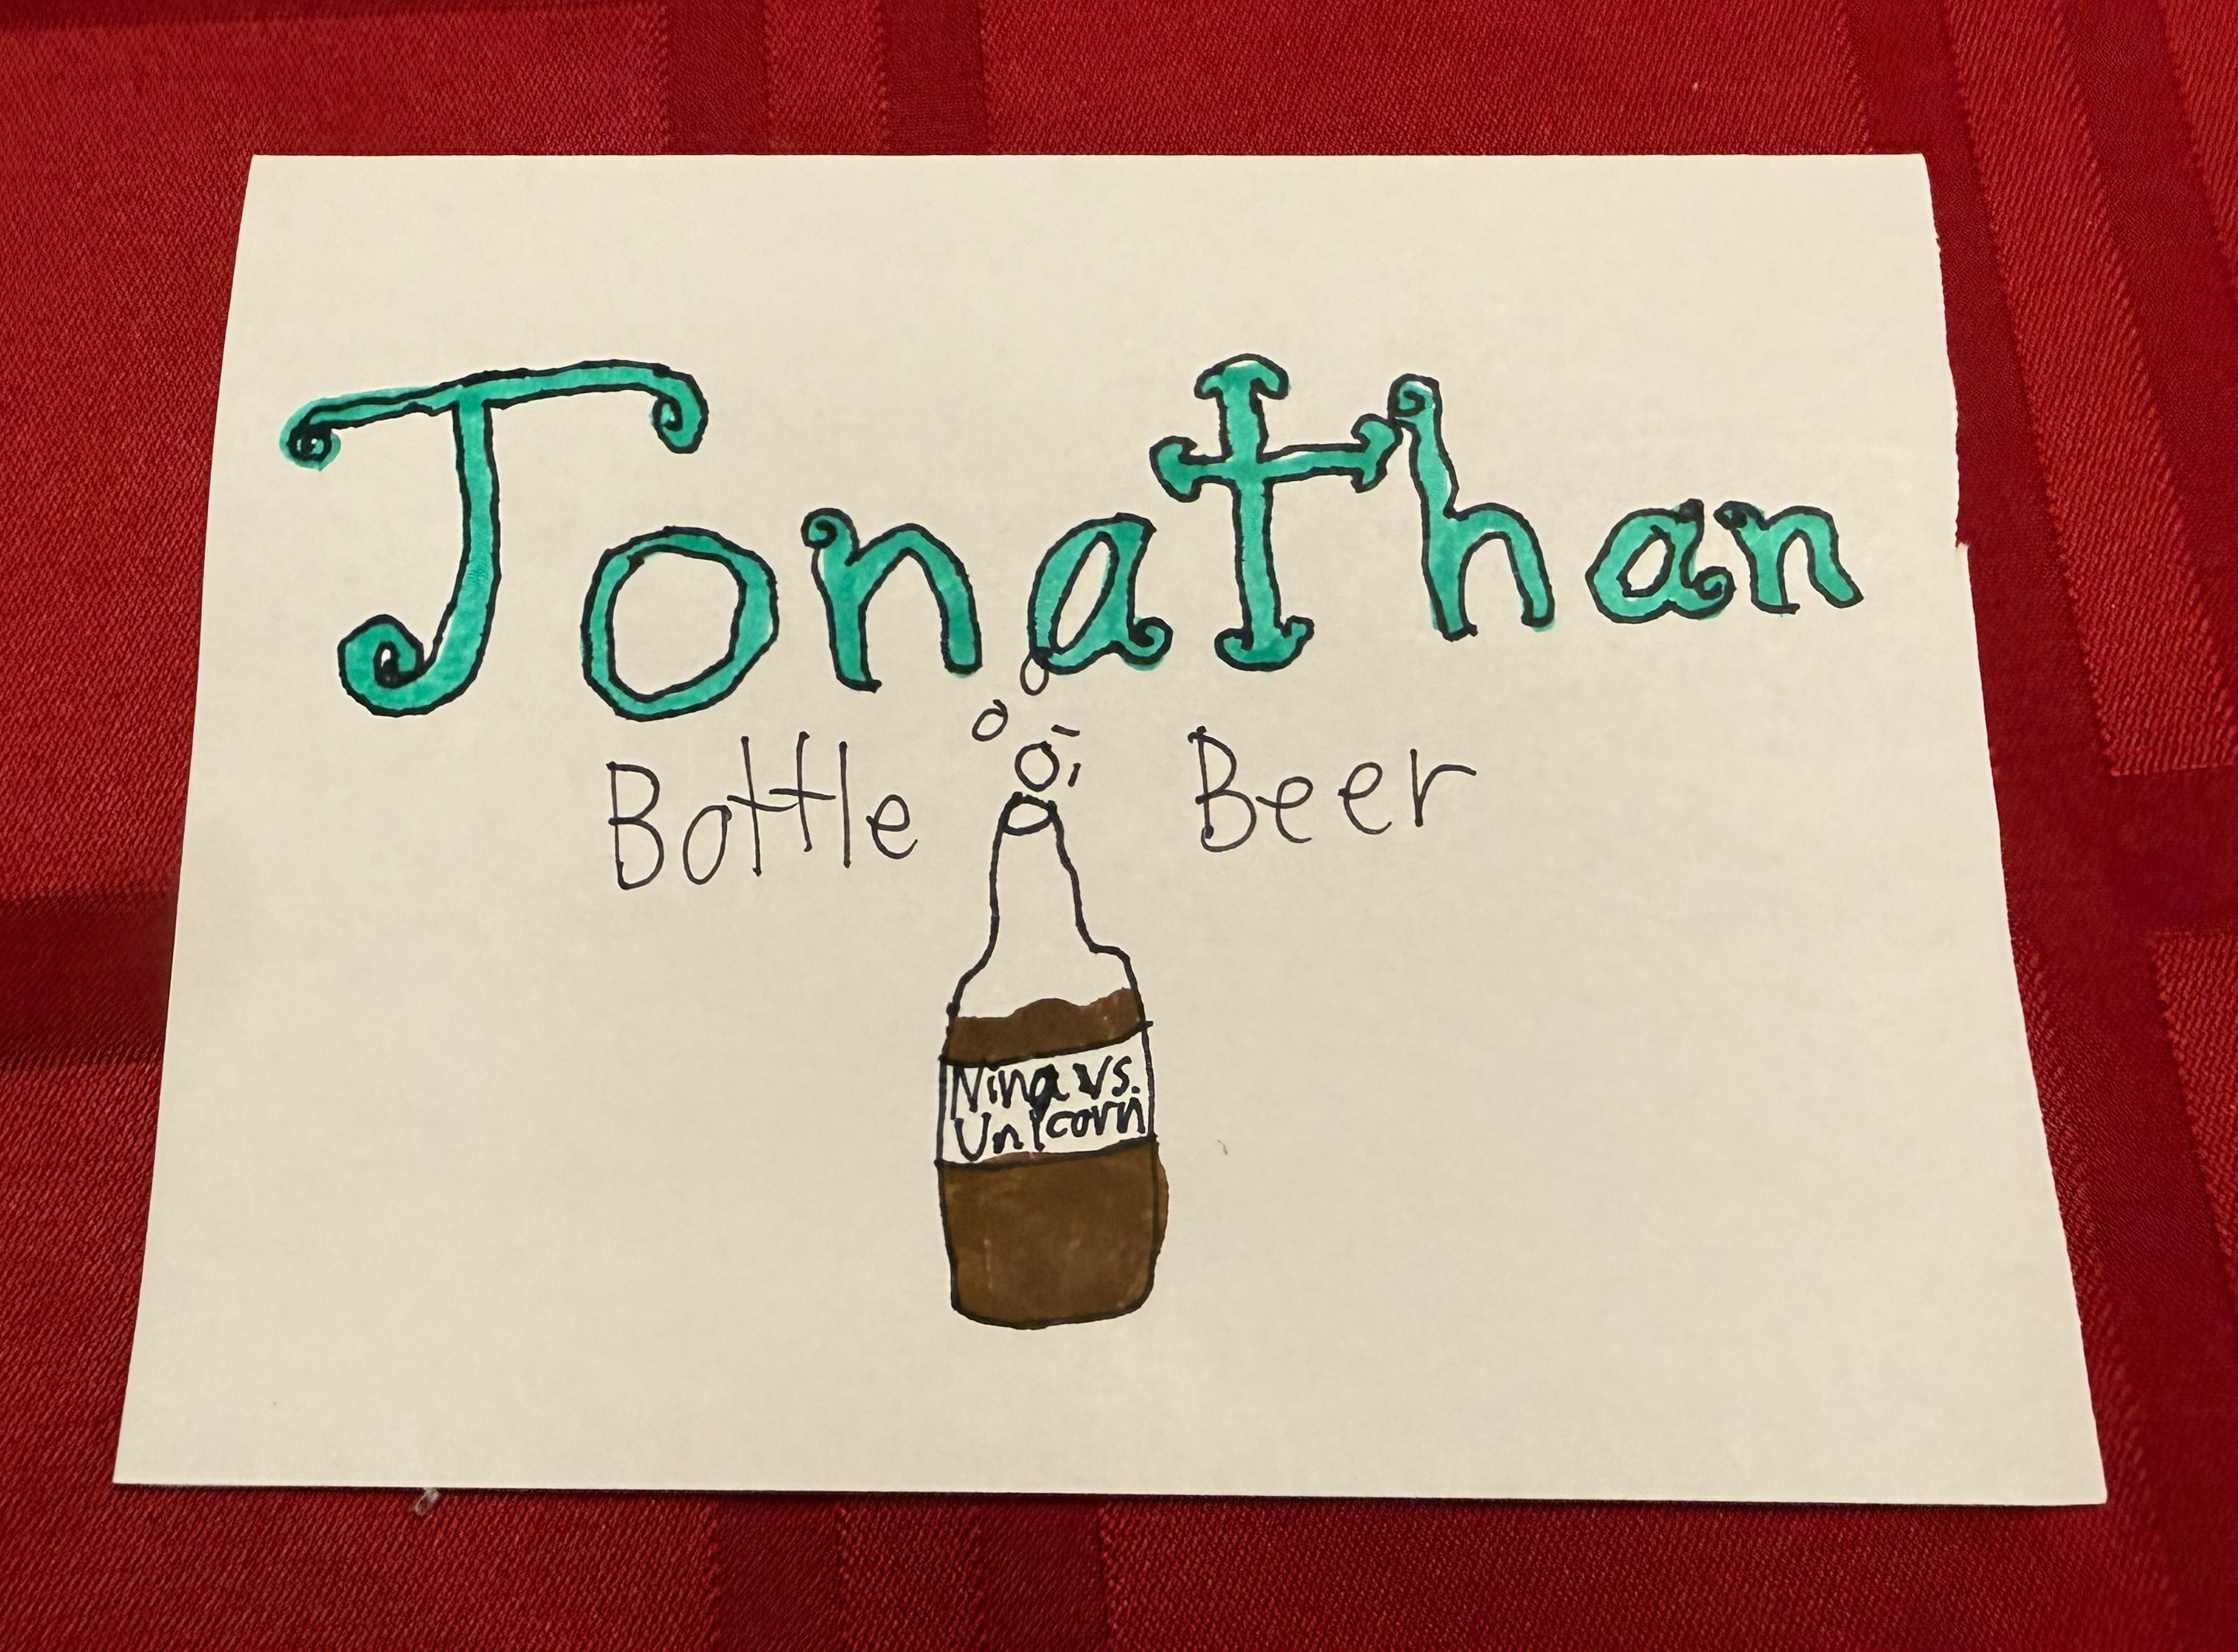 Jonathan
Bottle Beer
Nina vs.
Unicorn